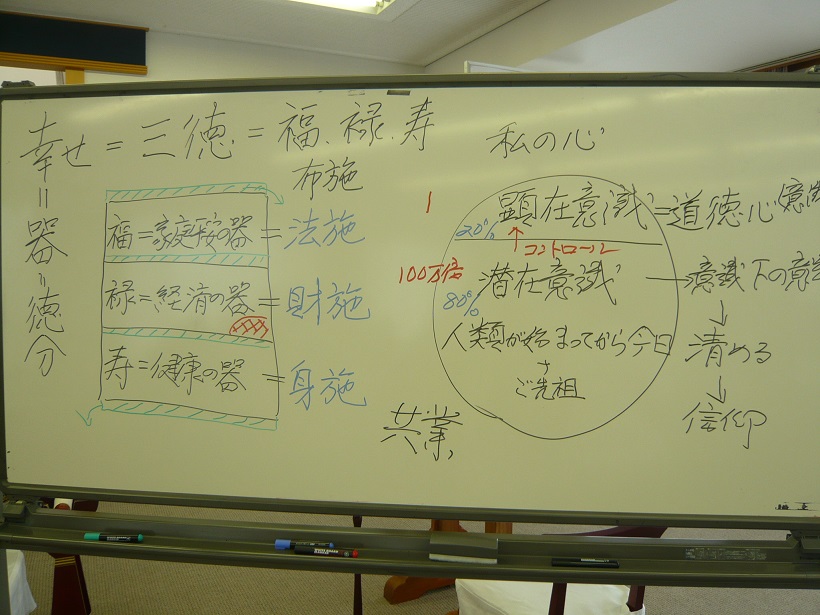 幸せ=三徳=福、禄、寿
=器=徳分
布施
福=家庭平安の器=法施
禄=経済の器=財施
寿=健康の器=身施
私の心
1
20%
顕在意識=道徳心
コントロール
100万倍
80%
潜在意識→意識下の意識
人類が始まってから今日
+
ご先祖
↓
清める
↓
信仰
共業